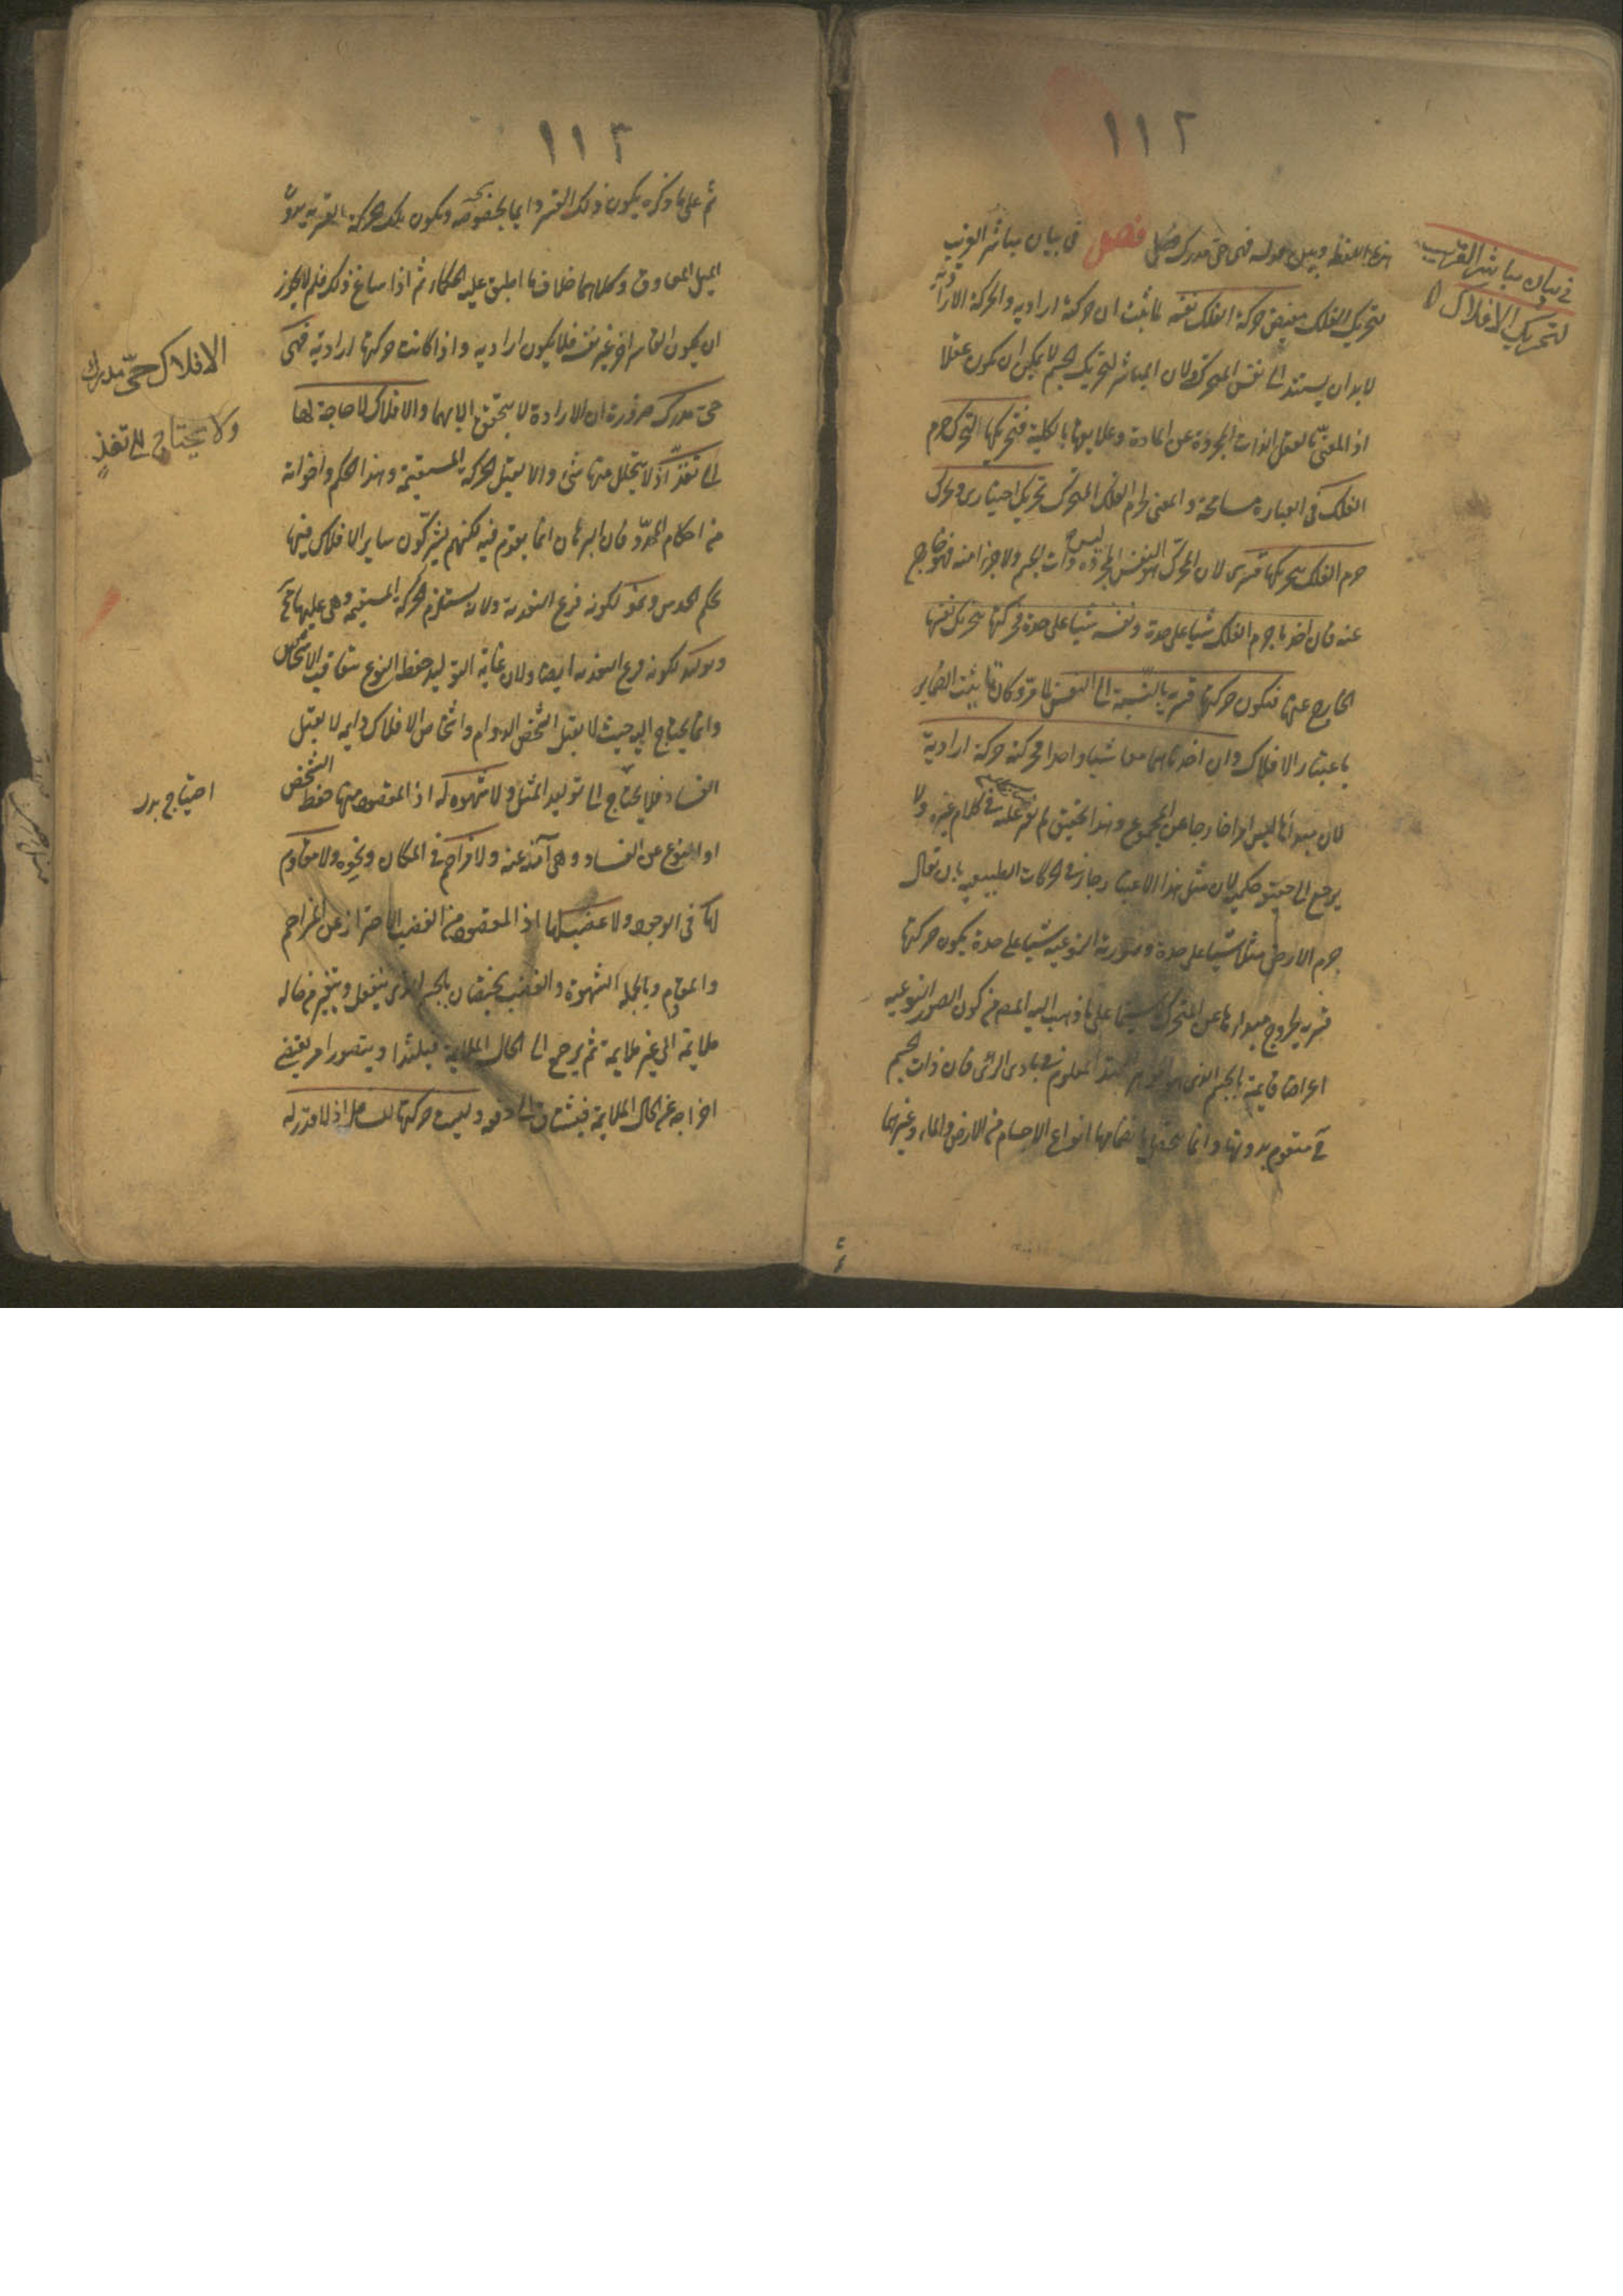 ١١٢
في بيان مباشر القريب
لتحريك الافلاك
هذا اللفظ فهى حى مدرك فصل فى بيان مباشر القريب
لتحريك الفلك مفيض حركة الفلك نفسه لما ثبت ان حركته ارادية والحركة الارادية
لابد ان يستند الى نفس المتحرك ولان المباشر لتحريك الجسم لا يمكن ان يكون عقلا
اذ المعنى بالعقل الذات المجردة عن المادة وعلايقها بالكلية فتحريكها التحرك جرم
الفلك فى العبارة مسامحة والمعنى جرم الفلك المتحرك تحريك اختيارى ومحرك
جرم الفلك بتحريكها قسرى لان المحرك النفس المجردة ليس ذات الجسم ولا جزءا منه فهو خارج
عنه فان اخذنا جرم الفلك شيئا على حدة ونفسه شيئا على حدة فحركتها بتحريك نفسها
الخارج عنها فتكون حركتها قسرية بالنسبة الى النفس لما مر وكان تانيث الضماير
باعتبار الافلاك وان اخذناهما معا شيئا واحدا فحركته حركة ارادية
لان مبدأها ليس امرا خارجا عن المجموع وهذا التحقيق لم نعثر عليه فى كلام غيره ولا
يرجع الى تحقيق حكمى لان مثل هذا الاعتبار جاز فى الحركات الطبيعية بان يقال
جرم الارض مثلا شيئا على حدة وصورته النوعية شيئا على حدة يكون حركتها
قسرية لخروج مبدأها عن المتحرك لا سيما على ما ذهب اليه المص من كون الصور النوعية
اعراضا قايمة بالجسم الذى هو الجوهر الممتد المعلوم فى بادى الرأى فان ذات الجسم
ح متقوم بدونها وانما يحصل بانضمامها انواع الاجسام من الارض والماء وغيرهما
١١٣
ثم على ما ذكره يكون ذلك القسر دايما بخصوصه ويكون تلك الحركة القسرية بدون
الميل المعاوق وكلاهما خلاف ما اطبق عليه الحكماء ثم اذا ساغ ذلك فلم لا يجوز
ان يكون القاسر اخر غير نفسه فلا يكون ارادية واذا كانت حركتها ارادية فهى
حى مدرك ضرورة ان الارادة لا يتحقق الا بهما والافلاك لا حاجة لها
الى تغذ اذ لا يتحلل منها شئ والا لقبل الحركة المستقيمة وهذا الحكم واخواته
من احكام المحدد فان البرهان انما يقوم فيه لكنهم يشركون ساير الافلاك فيها
بحكم الحدس ونمو لكونه فرع التغذية ولانه يستلزم الحركة المستقيمة وهى عليها مح
وتوليد لكونه فرع التغذية ايضا ولان غاية التوليد حفظ النوع بتعاقب الاشخاص
وانما يحتاج اليه حيث لا يقبل الشخص الدوام واشخاص الافلاك دايمة لا يقبل
الفساد فلا يحتاج الى توليد المثل ولا شهوة له اذ المقصود منها حفظ الشخص
او النوع عن الفساد وهى آمنة عنه ولا مزاحم فى المكان ونحوه ولا مقاوم
لها فى الوجود ولا غضب لها اذ المقصود من الغضب الاحتراز عن المزاحم
والمقاوم وبالجملة الشهوة والغضب يختصان بالجسم الذى ينفعل ويتغير من حالة
ملايمة الى غير ملايمة ثم يرجع الى الحال الملايمة فيلتذ او يتصور امر يقتضى
اخراجه عن الحال الملايمة فيشتاق الى دفعه وليست حركتها للسافل اذ لا قدر له
الافلاك حى مدرك
ولا يحتاج الى تغذٍ
احتياج بدر